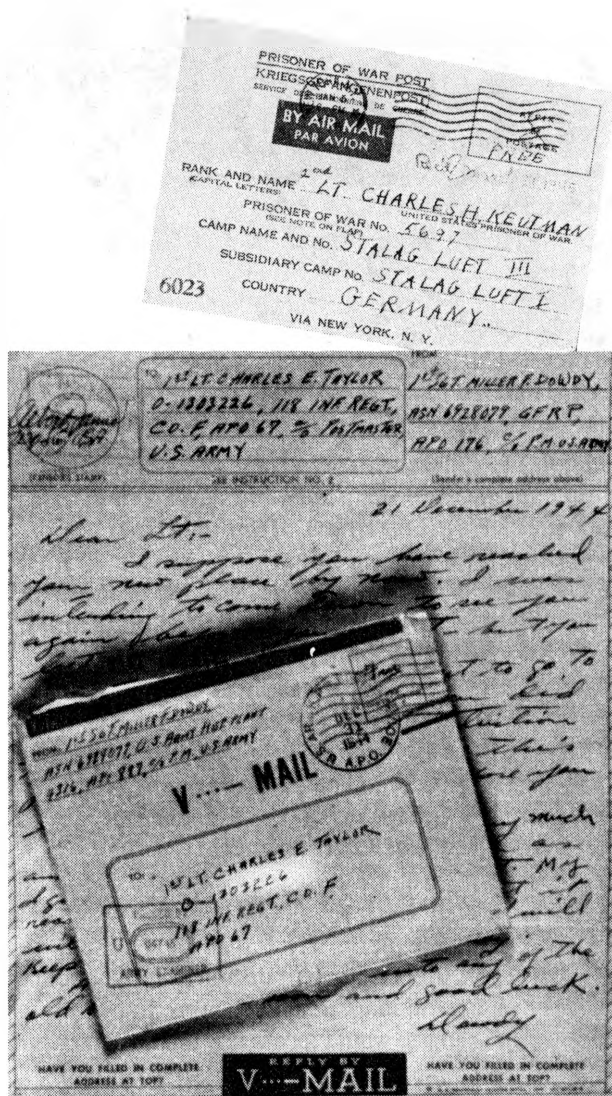 PRISONER OF WAR POST
KRIEGSGEFANGENENPOST
SERVICE DES
BY AIR MAIL
PAR AVION
POSTAGE
FREE
RANK AND NAME 2nd LT. CHARLES H. KEUTMAN
(CAPITAL LETTERS) UNITED STATES PRISONER OF WAR
PRISONER OF WAR No. 5697
(SEE NOTE ON FLAP)
CAMP NAME AND No. STALAG LUFT III
SUBSIDIARY CAMP No. STALAG LUFT I
COUNTRY GERMANY
6023
VIA NEW YORK, N. Y.
TO 1ST LT. CHARLES E. TAYLOR
O-1303226, 118 INF REGT,
CO. F, APO 67, c/o POSTMASTER,
U.S. ARMY
FROM
1ST SGT. MILLER F. DOWDY,
ASN 6928079, GFRP,
APO 176, c/o P.M. U.S. ARMY
(CENSOR'S STAMP) SEE INSTRUCTION NO. 2 (Sender's complete address above)
21 December 1944
Dear Lt:-
I suppose you have reached
your new place by now. I was
intending to come down to see you
again but you
t to go. To
bid
this
you
much
as
My
will
keep any of the
old and good luck.
Dowdy
FROM: 1ST SGT. MILLER F. DOWDY
U.S. ARMY HOSP. PLANT
4316, APO 887, c/o P.M. U.S. ARMY
V···— MAIL
DEC
1944
A.P.O.
TO:- 1ST LT. CHARLES E. TAYLOR
O-1303226
118 INF. REGT, CO. F.
APO 67
ARMY EXAMINER
HAVE YOU FILLED IN COMPLETE
ADDRESS AT TOP?
REPLY BY
V···—MAIL
HAVE YOU FILLED IN COMPLETE
ADDRESS AT TOP?